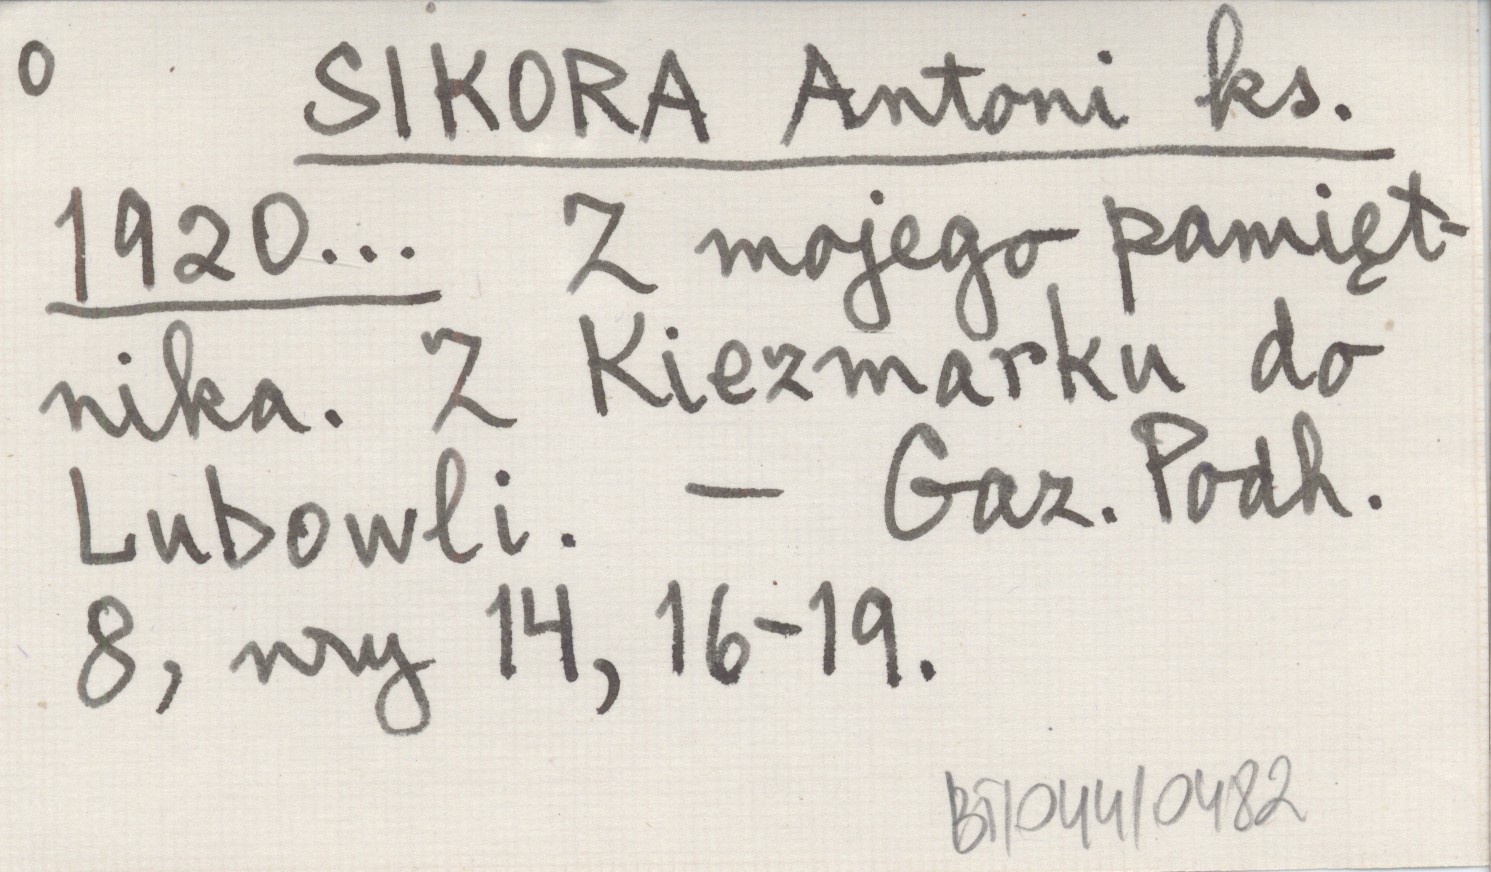 o SIKORA Antoni ks.
1920... Z mojego pamięt-
nika. Z Kiezmarku do
Lubowli. — Gaz. Podh.
8, nry 14, 16-19.
BT/044/0482